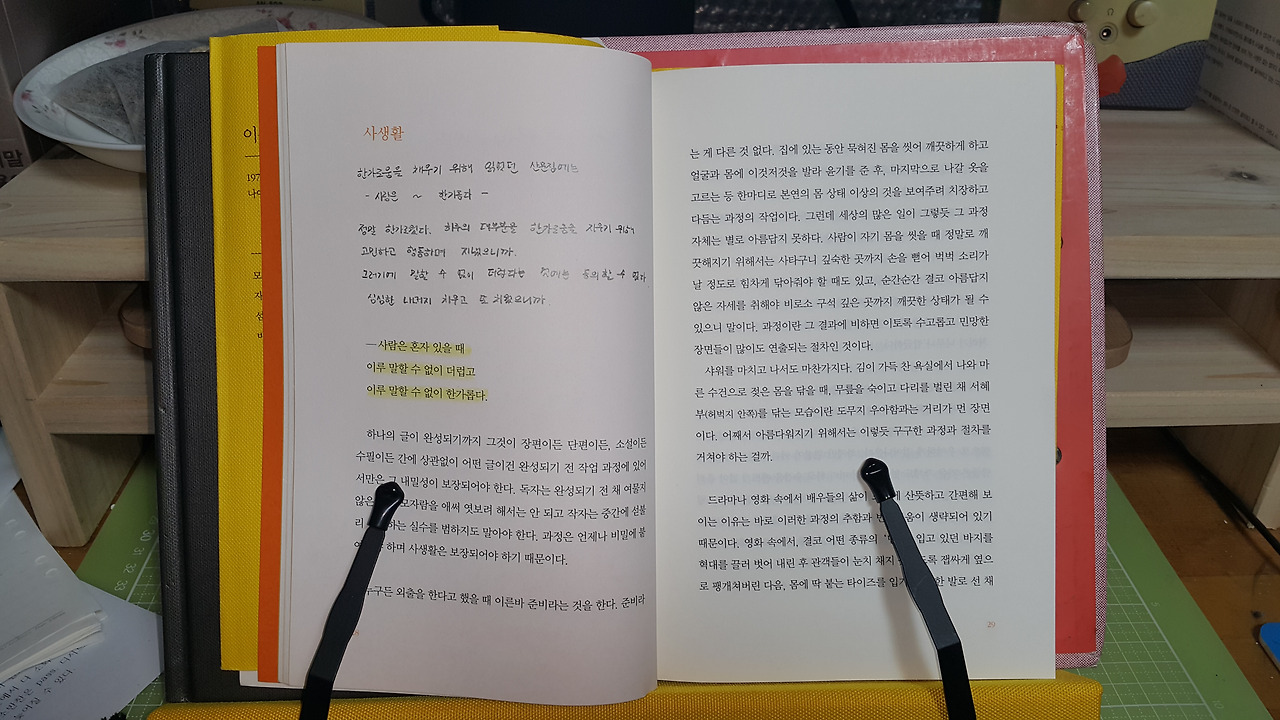 사생활
한가로움을 채우기 위해 읽었던 산문집에는
- 사람은 ~ 한가롭다 -
정말 한가로웠다. 하루의 대부분을 한가로움을 지우기 위해
고민하고 행동하며 지냈으니까.
그러기에 말할 수 없이 더럽다는 것에는 동의할 수 없다
심심한 내머지 치우고 또 치웠으니까.
—사람은 혼자 있을 때
이루 말할 수 없이 더럽고
이루 말할 수 없이 한가롭다.
하나의 글이 완성되기까지 그것이 장편이든 단편이든, 소설이든
수필이든 간에 상관없이 어떤 글이건 완성되기 전 작업 과정에 있어
서만은 그 내밀성이 보장되어야 한다. 독자는 완성되기 전 채 여물지
않은 모자람을 애써 엿보려 해서는 안 되고 작자는 중간에 섣불
리 하는 실수를 범하지도 말아야 한다. 과정은 언제나 비밀에 붙
하며 사생활은 보장되어야 하기 때문이다.
누구든 외출을 한다고 했을 때 이른바 준비라는 것을 한다. 준비라
는 게 다른 것 없다. 집에 있는 동안 묵혀진 몸을 씻어 깨끗하게 하고
얼굴과 몸에 이것저것을 발라 윤기를 준 후, 마지막으로 나갈 옷을
고르는 등 한마디로 본연의 몸 상태 이상의 것을 보여주려 치장하고
다듬는 과정의 작업이다. 그런데 세상의 많은 일이 그렇듯 그 과정
자체는 별로 아름답지 못하다. 사람이 자기 몸을 씻을 때 정말로 깨
끗해지기 위해서는 사타구니 깊숙한 곳까지 손을 뻗어 벅벅 소리가
날 정도로 힘차게 닦아줘야 할 때도 있고, 순간순간 결코 아름답지
않은 자세를 취해야 비로소 구석 깊은 곳까지 깨끗한 상태가 될 수
있으니 말이다. 과정이란 그 결과에 비하면 이토록 수고롭고 민망한
장면들이 많이도 연출되는 절차인 것이다.
샤워를 마치고 나서도 마찬가지다. 김이 가득 찬 욕실에서 나와 마
른 수건으로 젖은 몸을 닦을 때, 무릎을 숙이고 다리를 벌린 채 서혜
부(허벅지 안쪽)를 닦는 모습이란 도무지 우아함과는 거리가 먼 장면
이다. 어째서 아름다워지기 위해서는 이렇듯 구구한 과정과 절차를
거쳐야 하는 걸까.
드라마나 영화 속에서 배우들의 삶이 산뜻하고 간편해 보
이는 이유는 바로 이러한 과정의 추함과 생략되어 있기
때문이다. 영화 속에서, 결코 어떤 종류의 입고 있던 바지를
혁대를 끌러 벗어 내린 후 관객들이 눈치 채지 잽싸게 옆으
로 팽개쳐버린 다음, 몸에 달붙는 타이즈를 한 발로 선 채
29